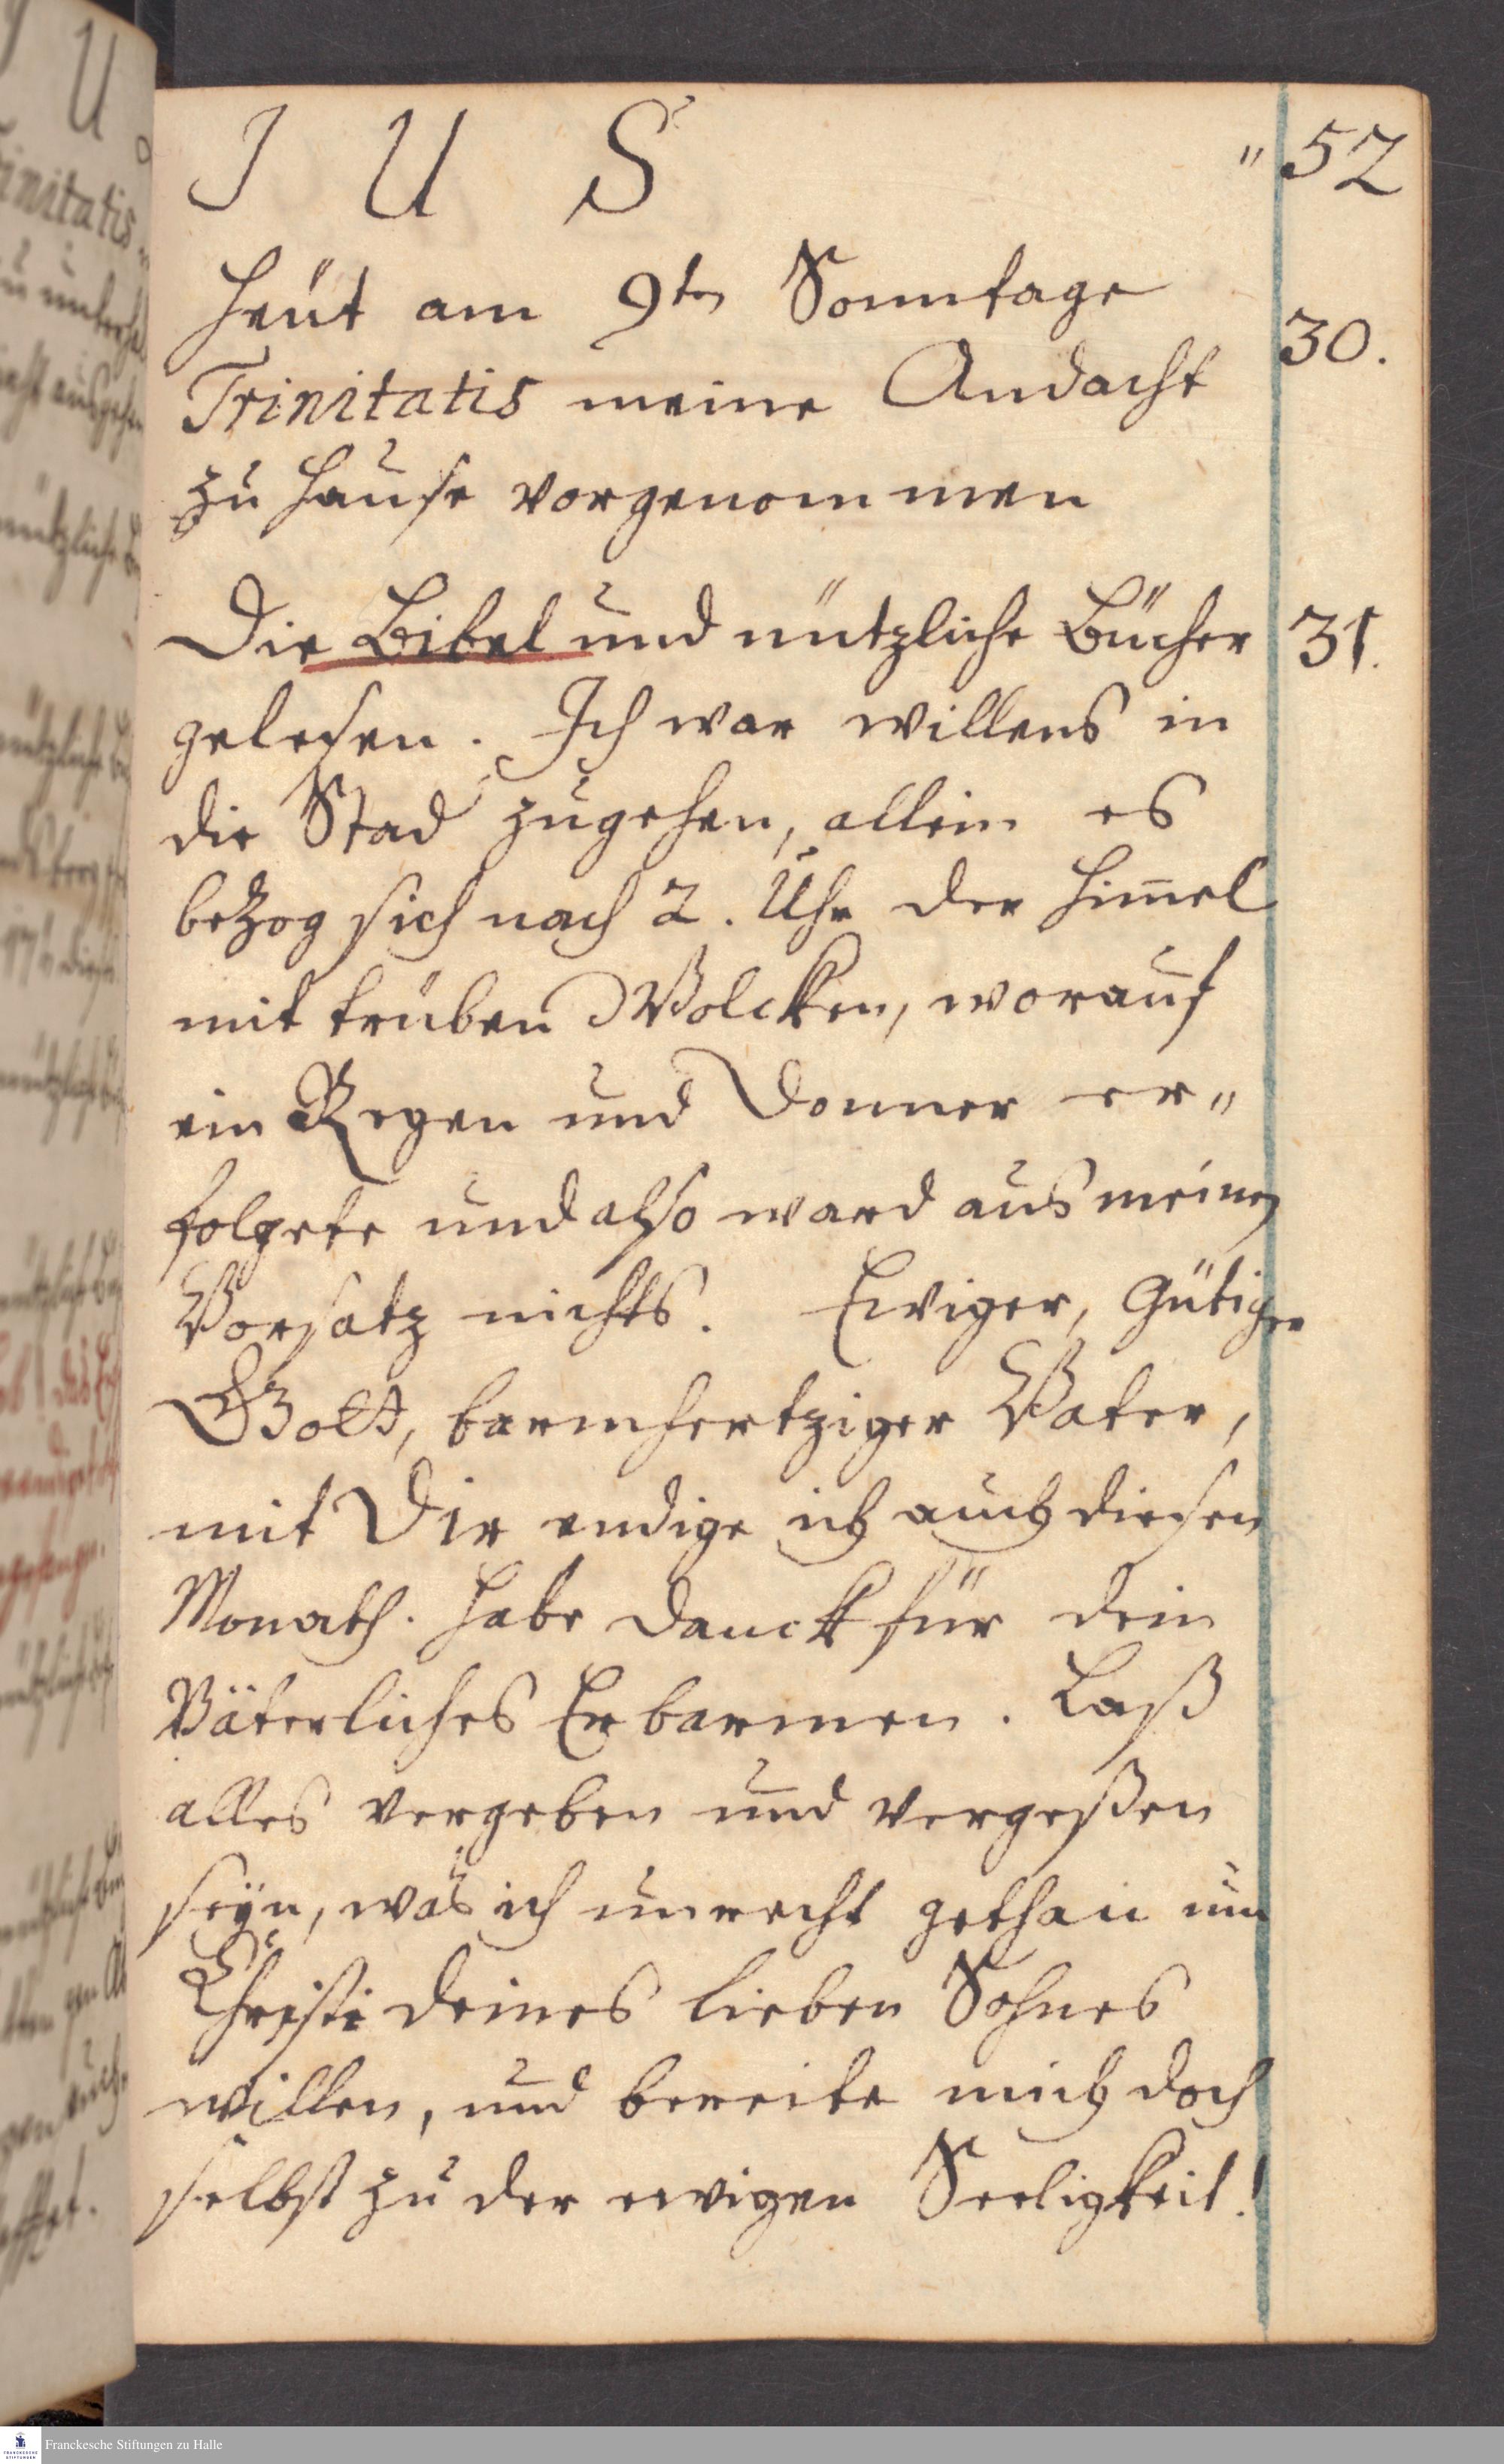 J U S " 52
Heüt am 9ten Sonntage 30.
Trinitatis meine Andacht
zu Hause vorgenommen
Die Bibel und nützliche Bücher 31.
gelesen. Ich war willens in
die Stad zugehen, allein es
bezog sich nach 2. Uhr der Himel
mit trüben Wolcken, worauf
ein Regen und Donner er"
folgete und also ward aus meinen
Vorsatz nichts. Ewiger, Gütiger
Gott, barmhertziger Vater,
mit Dir endige ich auch diesen
Monath. Habe Danck für dein
Väterliches Erbarmen. Laß
alles vergeben und vergeßen
seÿn, was ich unrecht gethan um
Christi deines lieben Sohnes
willen, und bereite mich doch
selbst zu der ewigen Seeligkeit!
Franckesche Stiftungen zu Halle